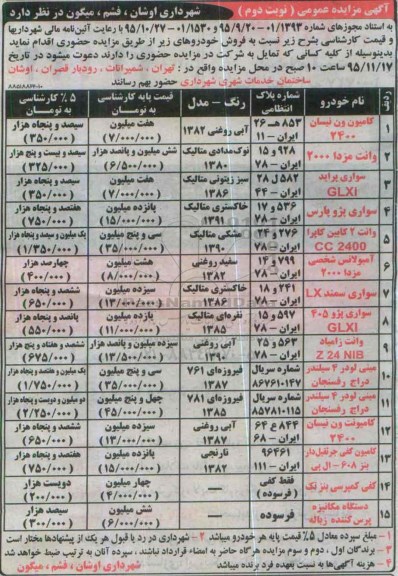 آگهی مزایده عمومی ( نوبت دوم )
شهرداری اوشان ، فشم ، میگون در نظر دارد
به استناد مجوزهای شماره ۰۱/۱۳۹۳-۹۵/۹/۲۰ و ۰۱/۱۵۳۰-۹۵/۱۰/۲۷ با رعایت آئین‌نامه مالی شهرداریها
و قیمت کارشناسی بشرح زیر نسبت به فروش خودروهای زیر از طریق مزایده حضوری اقدام نماید
بدینوسیله از کلیه کسانی که تمایل به شرکت در مزایده حضوری را دارند دعوت میشود در تاریخ
۹۵/۱۱/۱۷ ساعت ۱۰ صبح در محل مزایده واقع در : تهران ، شمیرانات ، رودبار قصران ، اوشان
ساختمان خدمات شهری شهرداری حضور بهم رسانند
ردیف | نام خودرو | شماره پلاک انتظامی | رنگ - مدل | قیمت پایه کارشناسی به تومان | ۵ ٪ کارشناسی به تومان
۱ | کامیون ون نیسان ۲۴۰۰ | ۸۵۳ هـ ۲۶ ایران - ۱۱ | آبی روغنی ۱۳۸۲ | هفت میلیون (۷/۰۰۰/۰۰۰) | سیصد و پنجاه هزار (۳۵۰/۰۰۰)
۲ | وانت مزدا ۲۰۰۰ | ۹۲۸ و ۱۵ ایران - ۷۸ | نوک‌مدادی متالیک ۱۳۸۳ | شش میلیون و پانصد هزار (۶/۵۰۰/۰۰۰) | سیصد و بیست و پنج هزار (۳۲۵/۰۰۰)
۳ | سواری پراید GLXI | ۵۸۲ ل ۲۸ ایران - ۴۴ | سبز زیتونی متالیک ۱۳۸۶ | هفت میلیون (۷/۰۰۰/۰۰۰) | سیصد و پنجاه هزار (۳۵۰/۰۰۰)
۴ | سواری پژو پارس | ۵۳۶ و ۱۷ ایران - ۷۸ | خاکستری متالیک ۱۳۹۱ | پانزده میلیون (۱۵/۰۰۰/۰۰۰) | هفتصد و پنجاه هزار (۷۵۰/۰۰۰)
۵ | وانت ۲ کابین کاپرا CC 2400 | ۲۷۶ و ۲۴ ایران - ۷۸ | مشکی متالیک ۱۳۹۰ | سی و پنج میلیون (۳۵/۰۰۰/۰۰۰) | یک میلیون و پنجاه هزار (۱/۳۵۰/۰۰۰)
۶ | آمبولانس شخصی مزدا ۲۰۰۰ | ۷۹۹ و ۱۴ ایران - ۷۸ | سفید روغنی ۱۳۸۲ | هشت میلیون (۸/۰۰۰/۰۰۰) | چهارصد هزار (۴۰۰/۰۰۰)
۷ | سواری سمند LX | ۲۴۱ و ۱۸ ایران - ۷۸ | خاکستری متالیک ۱۳۸۶ | سیزده میلیون (۱۳/۰۰۰/۰۰۰) | ششصد و پنجاه هزار (۶۵۰/۰۰۰)
۸ | سواری پژو ۴۰۵ GLXI | ۵۹۷ و ۱۵ ایران - ۷۸ | نقره‌ای متالیک ۱۳۸۵ | یازده میلیون (۱۱/۰۰۰/۰۰۰) | پانصد و پنجاه هزار (۵۵۰/۰۰۰)
۹ | وانت زامیاد Z 24 NIB | ۵۶۳ و ۲۵ ایران - ۷۸ | آبی روغنی ۱۳۹۰ | سیزده میلیون و پانصد هزار (۱۳/۵۰۰/۰۰۰) | ششصد و هفتاد و پنج هزار (۶۷۵/۰۰۰)
۱۰ | مینی لودر ۴ سیلندر دراج رفسنجان | شماره سریال ۸۶۷۶۱۰۱۴۷ | فیروزه‌ای ۷۶۱ ۱۳۸۶ | سی و پنج میلیون (۳۵/۰۰۰/۰۰۰) | یک میلیون و هفتصد و پنجاه هزار (۱/۷۵۰/۰۰۰)
۱۱ | مینی لودر ۴ سیلندر دراج رفسنجان | شماره سریال ۸۵۷۸۱۰۱۱۵ | فیروزه‌ای ۷۸۱ ۱۳۸۵ | چهل و پنج میلیون (۴۵/۰۰۰/۰۰۰) | دو میلیون و دویست و پنجاه هزار (۲/۲۵۰/۰۰۰)
۱۲ | کامیونت ون نیسان ۲۴۰۰ | ۸۴۴ ع ۶۴ ایران - ۶۸ | آبی روغنی ۱۳۸۷ | سیزده میلیون (۱۳/۰۰۰/۰۰۰) | ششصد و پنجاه هزار (۶۵۰/۰۰۰)
۱۳ | کامیون کفی جرثقیل‌دار بنز ۶۰۸ - ال پی | ۹۶۴۶۱ ایران - ۱۱۱ | نارنجی | پانزده میلیون (۱۵/۰۰۰/۰۰۰) | هفتصد و پنجاه هزار (۷۵۰/۰۰۰)
۱۴ | کفی کمپرسی بنز تک | فقط کفی (فرسوده) | — | چهار میلیون (۴/۰۰۰/۰۰۰) | دویست هزار (۲۰۰/۰۰۰)
۱۵ | دستگاه مکانیزه پرس کننده زباله | فرسوده | — | شش میلیون (۶/۰۰۰/۰۰۰) | سیصد هزار (۳۰۰/۰۰۰)
۱ - مبلغ سپرده معادل ۵٪ قیمت پایه هر خودرو میباشد ۲ - شهرداری در رد یا قبول هر یک از پیشنهادها مختار است
۳ - برندگان اول ، دوم و سوم مزایده هرگاه حاضر به امضاء قرارداد نباشند ، سپرده آنان به ترتیب ضبط خواهد شد
۴ - هزینه آگهی‌ها به نسبت بعهده فرد برنده میباشد
شهرداری اوشان ، فشم ، میگون